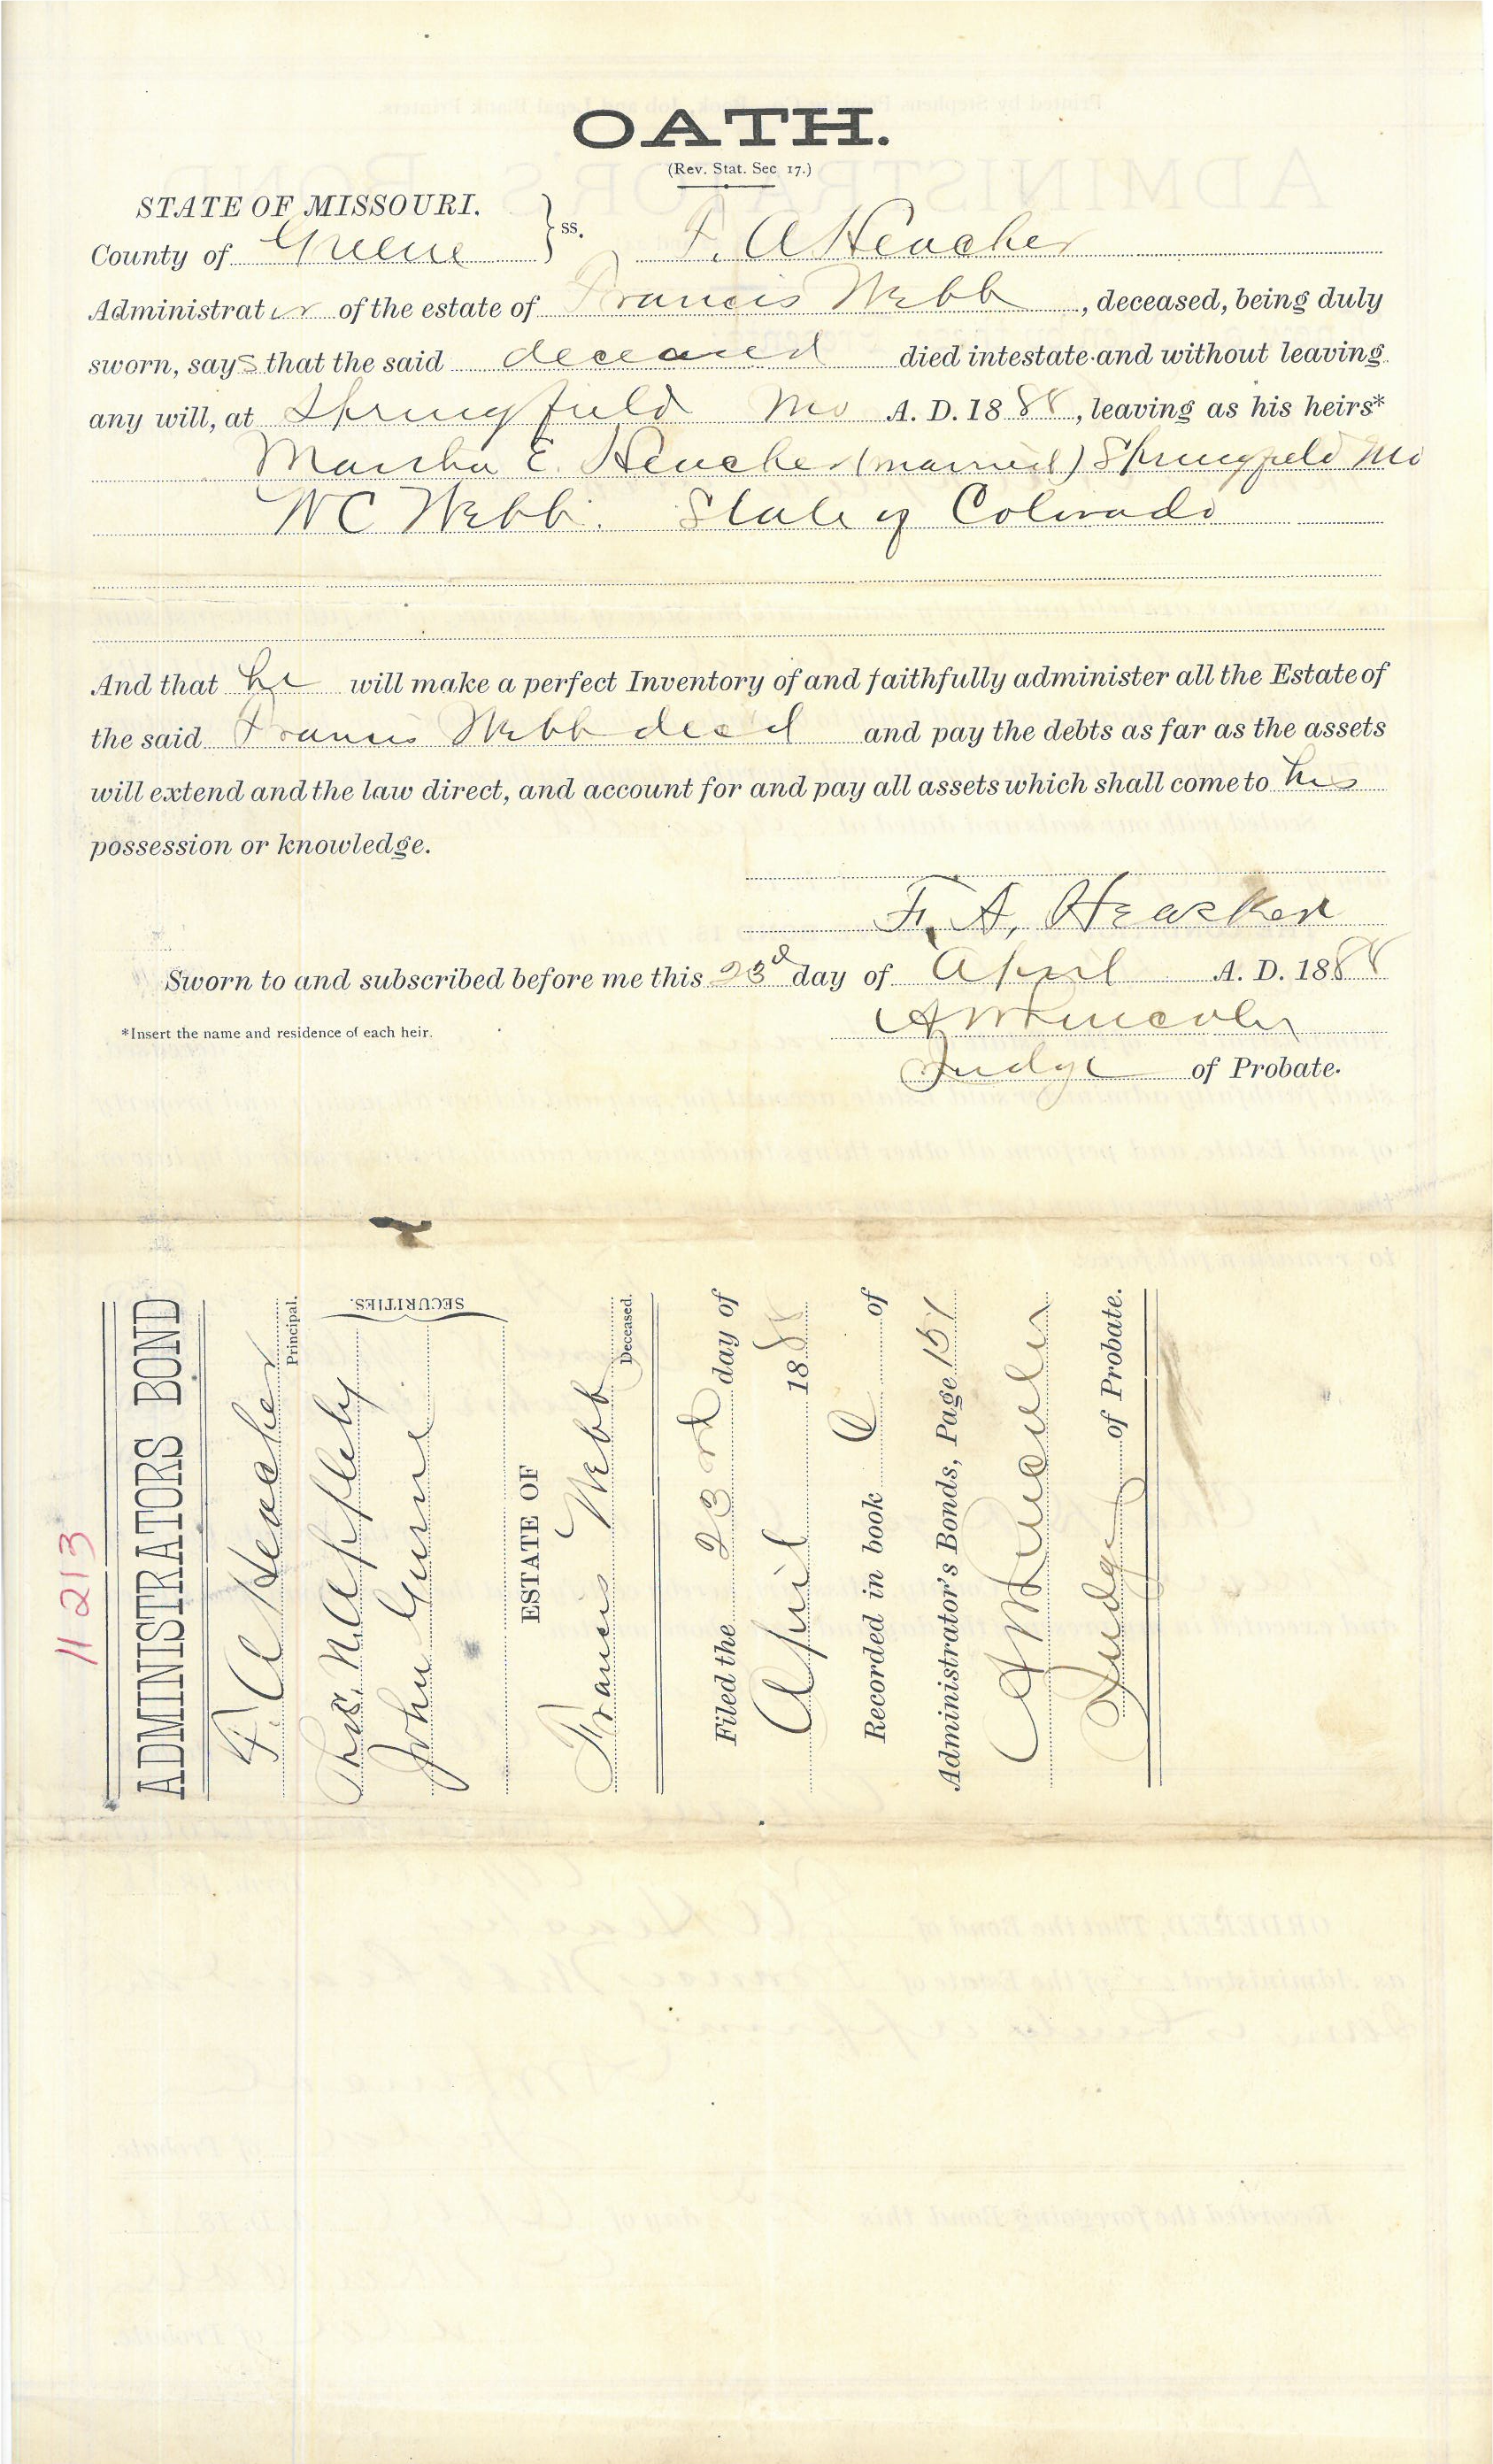 OATH.
(Rev. Stat. Sec 17.)
STATE OF MISSOURI.
County of Greene } ss. F. A Heacker
Administrator of the estate of Francis Webb, deceased, being duly
sworn, says that the said deceased died intestate and without leaving
any will, at Springfield Mo A. D. 1888, leaving as his heirs*
Martha E. Heacker (married) Springfield Mo
W C Webb. State of Colorado
And that he will make a perfect Inventory of and faithfully administer all the Estate of
the said Francis Webb dec'd and pay the debts as far as the assets
will extend and the law direct, and account for and pay all assets which shall come to his
possession or knowledge.
F. A. Heacker
Sworn to and subscribed before me this 23d day of April A. D. 1888
A W Lincoln
*Insert the name and residence of each heir.
Judge of Probate.
11213
ADMINISTRATORS BOND
F. A Heacker
Principal.
Thos. N. Appleby
John Gunn
SECURITIES.
ESTATE OF
Francis Webb
Deceased.
Filed the 23rd day of
April 1888
Recorded in book of
Administrator's Bonds, Page 151
A W Lincoln
Judge of Probate.